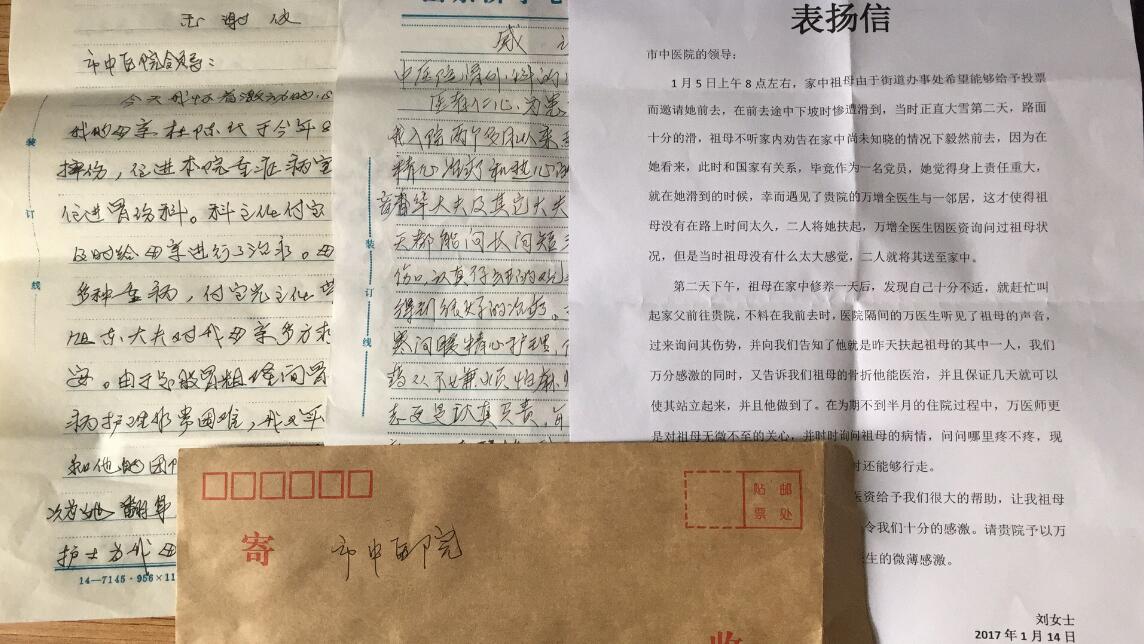 感谢信
市中医院领导：
今天我怀着激动的心
我的母亲杜陈氏于今年
摔伤，住进本院重症病室
住进骨伤科。科主任付宝
及时给母亲进行了治疗。母
多种重病，付宝光主任
大夫对我母亲多方求
安。由于股骨粗隆间骨
病护理非常困难，我见年
和他的团
次为她翻身
护士为我母
14—7145·956×11
装
订
线
感
中医院骨外科的
医者仁心，为患
我入院两个多月以来
精心治疗和热心
华大夫及其它大夫
天都船问长问短
伤。认真仔细的观
得到很好的治疗。
寒问暖精心护理，
持从不兼烦怕麻
志更是认真负责，
装
订
线
表扬信
市中医院的领导：
1月5日上午8点左右，家中祖母由于街道办事处希望能够给予投票
而邀请她前去，在前去途中下坡时惨遭滑到，当时正直大雪第二天，路面
十分的滑，祖母不听家内劝告在家中尚未知晓的情况下毅然前去，因为在
她看来，此时和国家有关系，毕竟作为一名党员，她觉得身上责任重大，
就在她滑到的时候，幸而遇见了贵院的万增全医生与一邻居，这才使得祖
母没有在路上时间太久，二人将她扶起，万增全医生因医资询问过祖母状
况，但是当时祖母没有什么太大感觉，二人就将其送至家中。
第二天下午，祖母在家中修养一天后，发现自己十分不适，就赶忙叫
起家父前往贵院，不料在我前去时，医院隔间的万医生听见了祖母的声音，
过来询问其伤势，并向我们告知了他就是昨天扶起祖母的其中一人，我们
万分感激的同时，又告诉我们祖母的骨折他能医治，并且保证几天就可以
使其站立起来，并且他做到了。在为期不到半月的住院过程中，万医师更
是对祖母无微不至的关心，并时时询问祖母的病情，问问哪里疼不疼，现
时还能够行走。
医资给予我们很大的帮助，让我祖母
令我们十分的感激。请贵院予以万
生的微薄感激。
刘女士
2017年1月14日
贴 邮
票 处
寄 市中医院
收